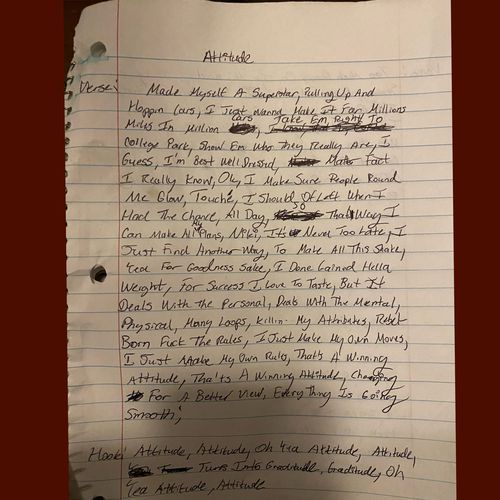 Attitude
Verse: Made Myself A Superstar, Pulling Up And
Hoppin Cars, I Just Wanna Make It Far Millions
Miles In Million Cars, Take Em Right To
College Park, Show Em Who They Really Are, I
Guess, I'm Best Well Dressed, Matta Fact
I Really Know, Ok, I Make Sure People Round
Me Glow, Touché, I Should Of Left When I
Had The Chance, All Day, So That Way I
Can Make All My Plans, It's Never Too Late, I
Just Find Another Way, To Make All This Shake,
Yea For Goodness Sake, I Done Gained Hella
Weight, For Success I Love To Taste, But It
Deals With The Personal, Deals With The Mental,
Physical, Many Loops, Killin My Attributes, Rebel
Born Fuck The Rules, I Just Make My Own Moves,
I Just Make My Own Rules, That's A Winning
Attitude, Tha'ts A Winning Attitude,
For A Better View, Every Thing Is Going
Smooth,
Hook: Attitude, Attitude, Oh Yea Attitude, Attitude,
Turns Into Graditude, Graditude, Oh
Yea Attitude, Attitude